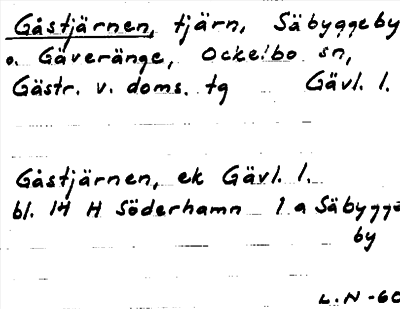 Gåstjärnen, tjärn, Säbyggeby
o. Gäveränge, Ockelbo sn,
Gästr. v. doms. tg Gävl. l.
Gåstjärnen, ek Gävl. l.
bl. 14 H Söderhamn 1 a Säbygge
by
L.N -60